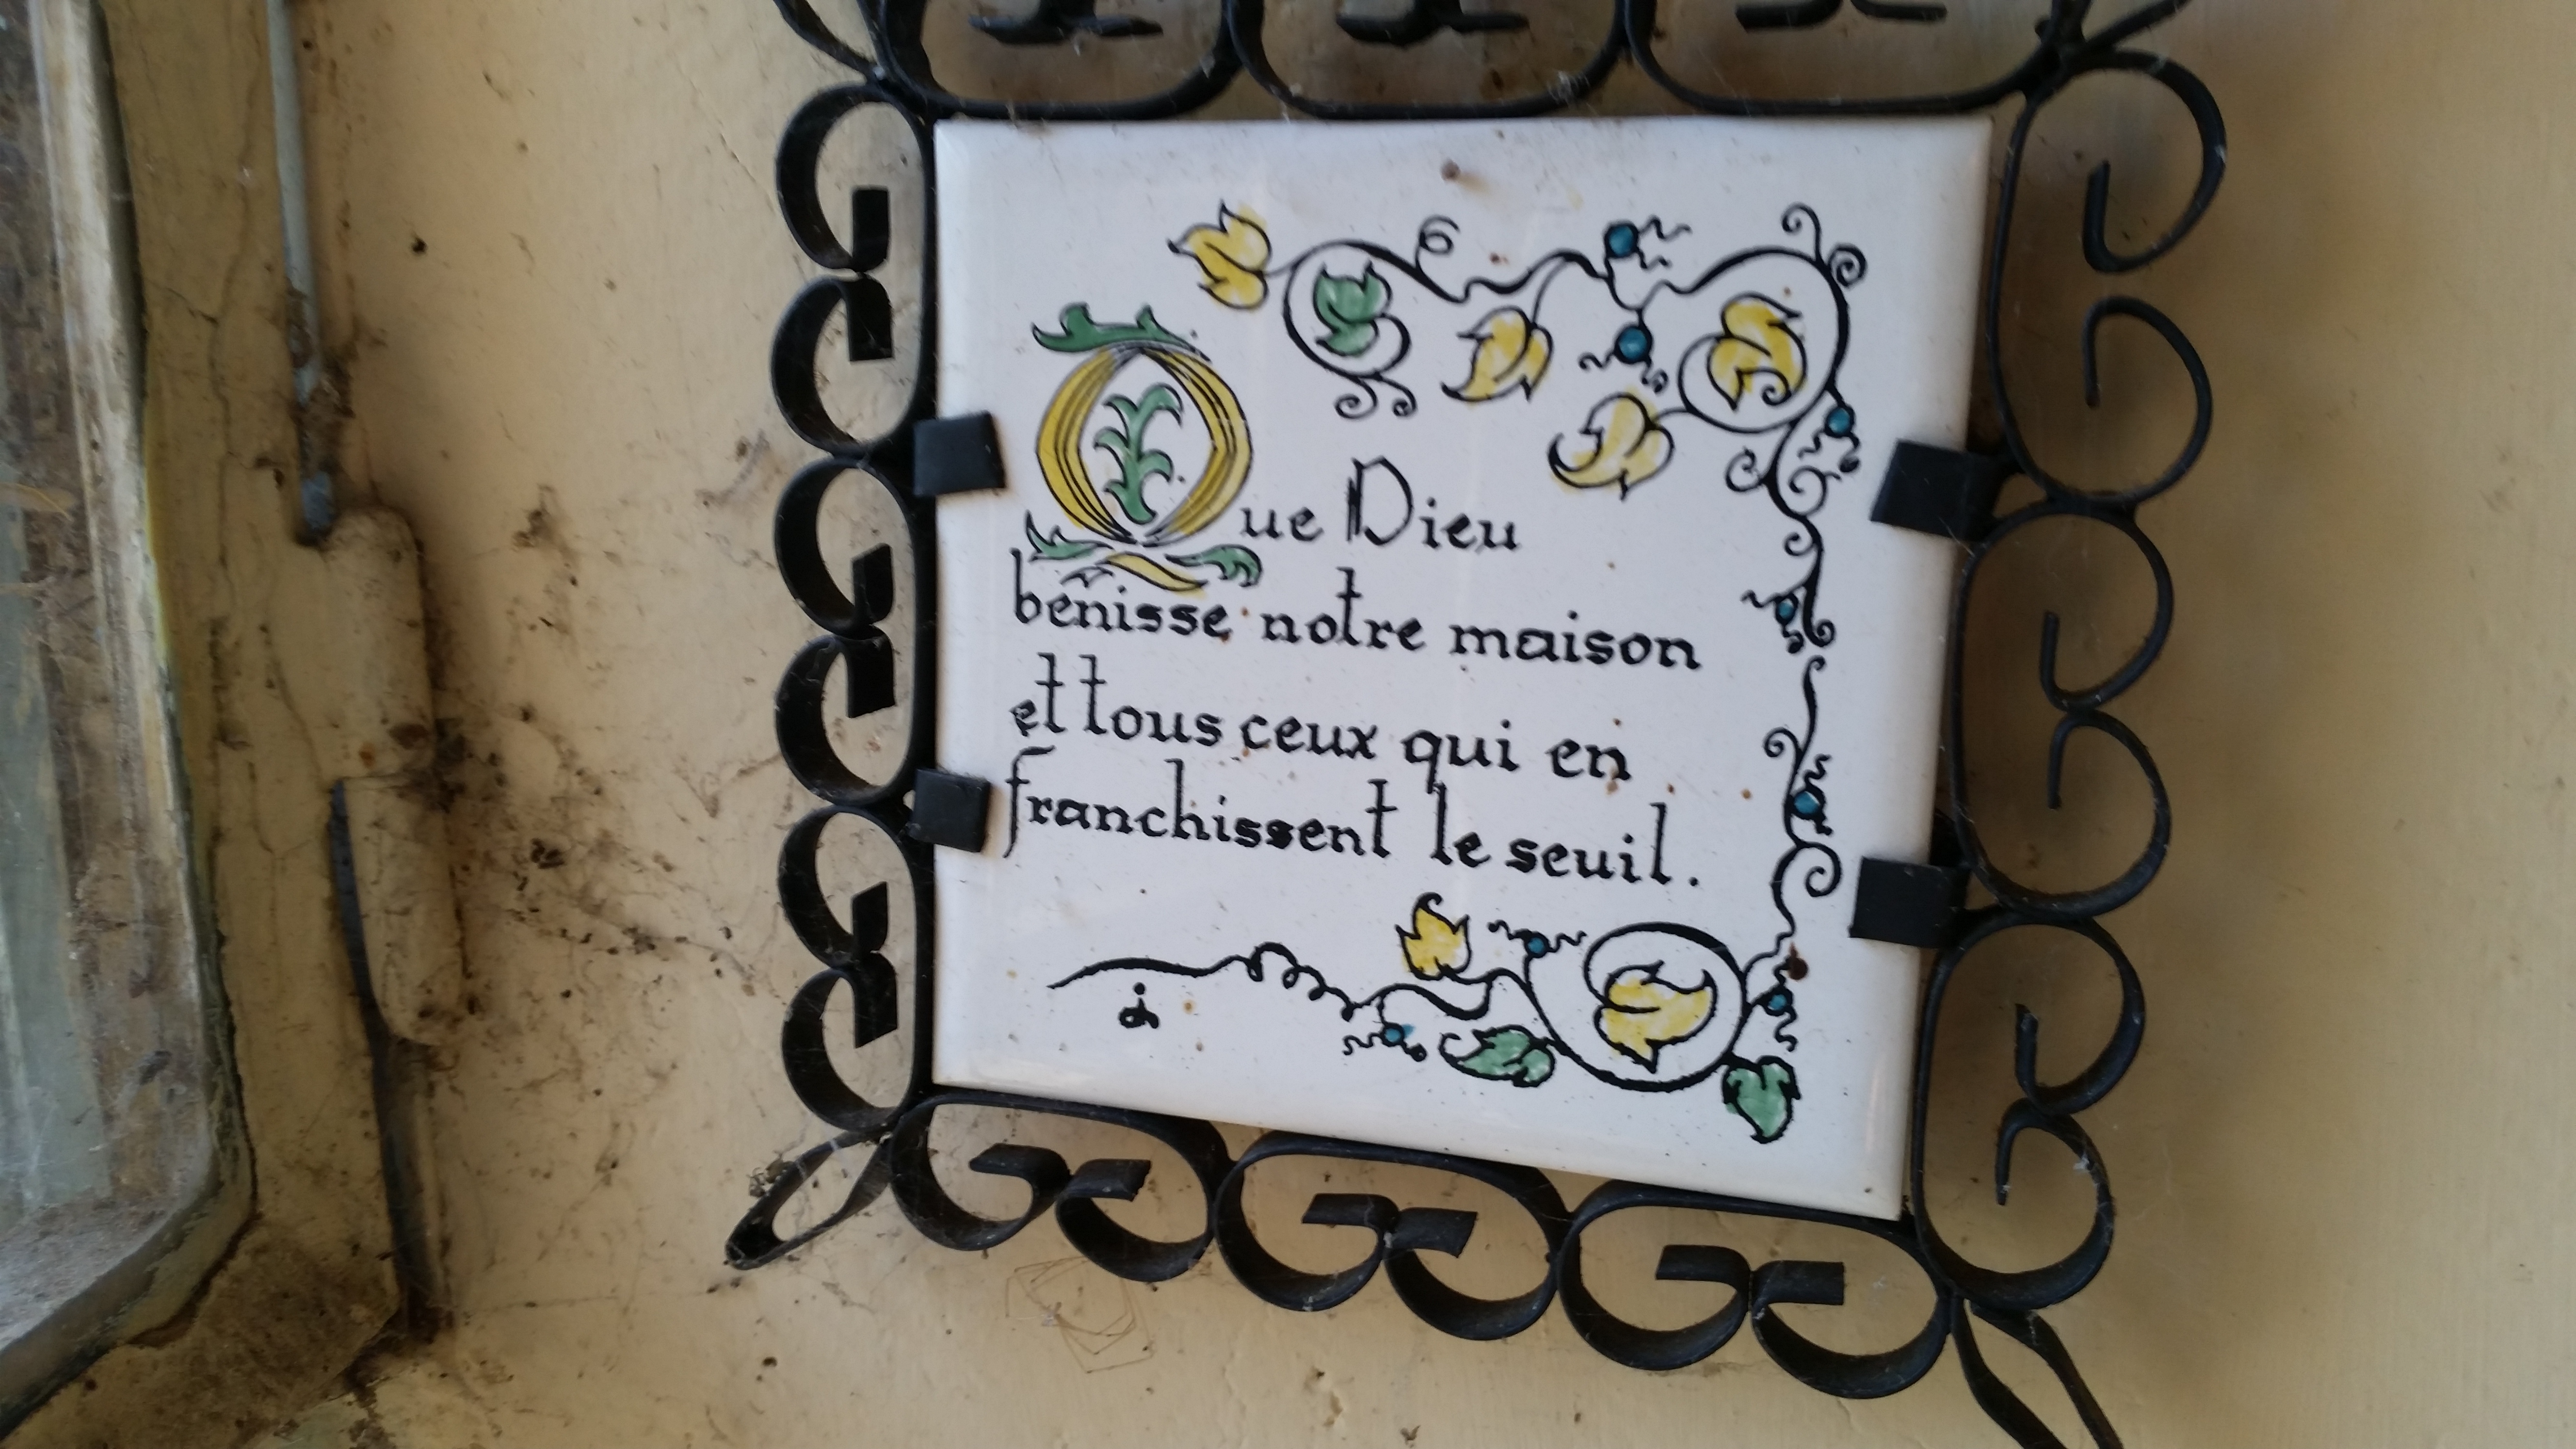 Que Dieu
bénisse notre maison
et tous ceux qui en
franchissent le seuil.